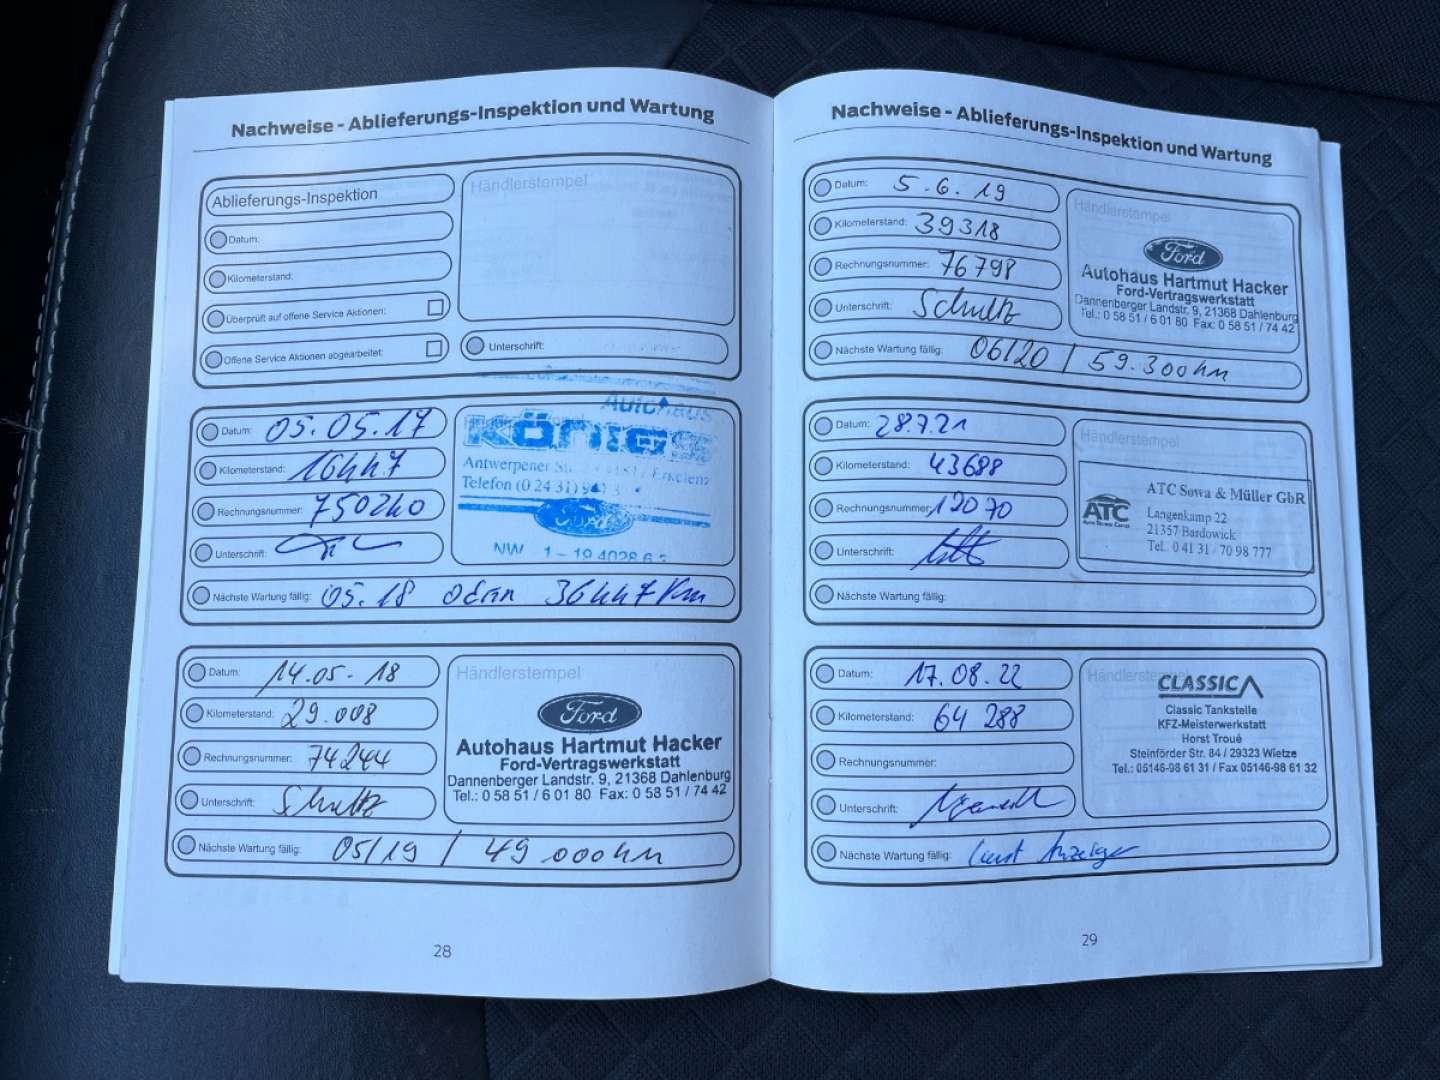 Nachweise - Ablieferungs-Inspektion und Wartung
Ablieferungs-Inspektion
Händlerstempel
Datum:
Kilometerstand:
Überprüft auf offene Service Aktionen:
Offene Service Aktionen abgearbeitet:
Unterschrift:
Datum: 05.05.17
Kilometerstand: 16447
Rechnungsnummer: 750240
Unterschrift:
Nächste Wartung fällig: 05.18 oder 36447 Km
Autohaus
KÖNIGS
Antwerpener
Erkelenz
Telefon (0 24 31)
Ford
Datum: 14.05.18
Kilometerstand: 29.008
Rechnungsnummer: 74244
Unterschrift: Schultz
Nächste Wartung fällig: 05/19 / 49.000km
Händlerstempel
Ford
Autohaus Hartmut Hacker
Ford-Vertragswerkstatt
Dannenberger Landstr. 9, 21368 Dahlenburg
Tel.: 0 58 51 / 6 01 80 Fax: 0 58 51 / 74 42
28
Nachweise - Ablieferungs-Inspektion und Wartung
Datum: 5.6.19
Kilometerstand: 39318
Rechnungsnummer: 76798
Unterschrift: Schultz
Nächste Wartung fällig: 06/20 / 59.300km
Händlerstempel
Ford
Autohaus Hartmut Hacker
Ford-Vertragswerkstatt
Dannenberger Landstr. 9, 21368 Dahlenburg
Tel.: 0 58 51 / 6 01 80 Fax: 0 58 51 / 74 42
Datum: 28.7.21
Kilometerstand: 43688
Rechnungsnummer: 12070
Unterschrift:
Nächste Wartung fällig:
Händlerstempel
ATC
ATC Sowa & Müller GbR
Langenkamp 22
21357 Bardowick
Tel. 0 41 31 - 70 98 777
Datum: 17.08.22
Kilometerstand: 64 288
Rechnungsnummer:
Unterschrift:
Nächste Wartung fällig: laut Anzeige
Händlerstempel
CLASSIC
Classic Tankstelle
KFZ-Meisterwerkstatt
Horst Troué
Steinförder Str. 84 / 29323 Wietze
Tel.: 05146-98 61 31 / Fax 05146-98 61 32
29